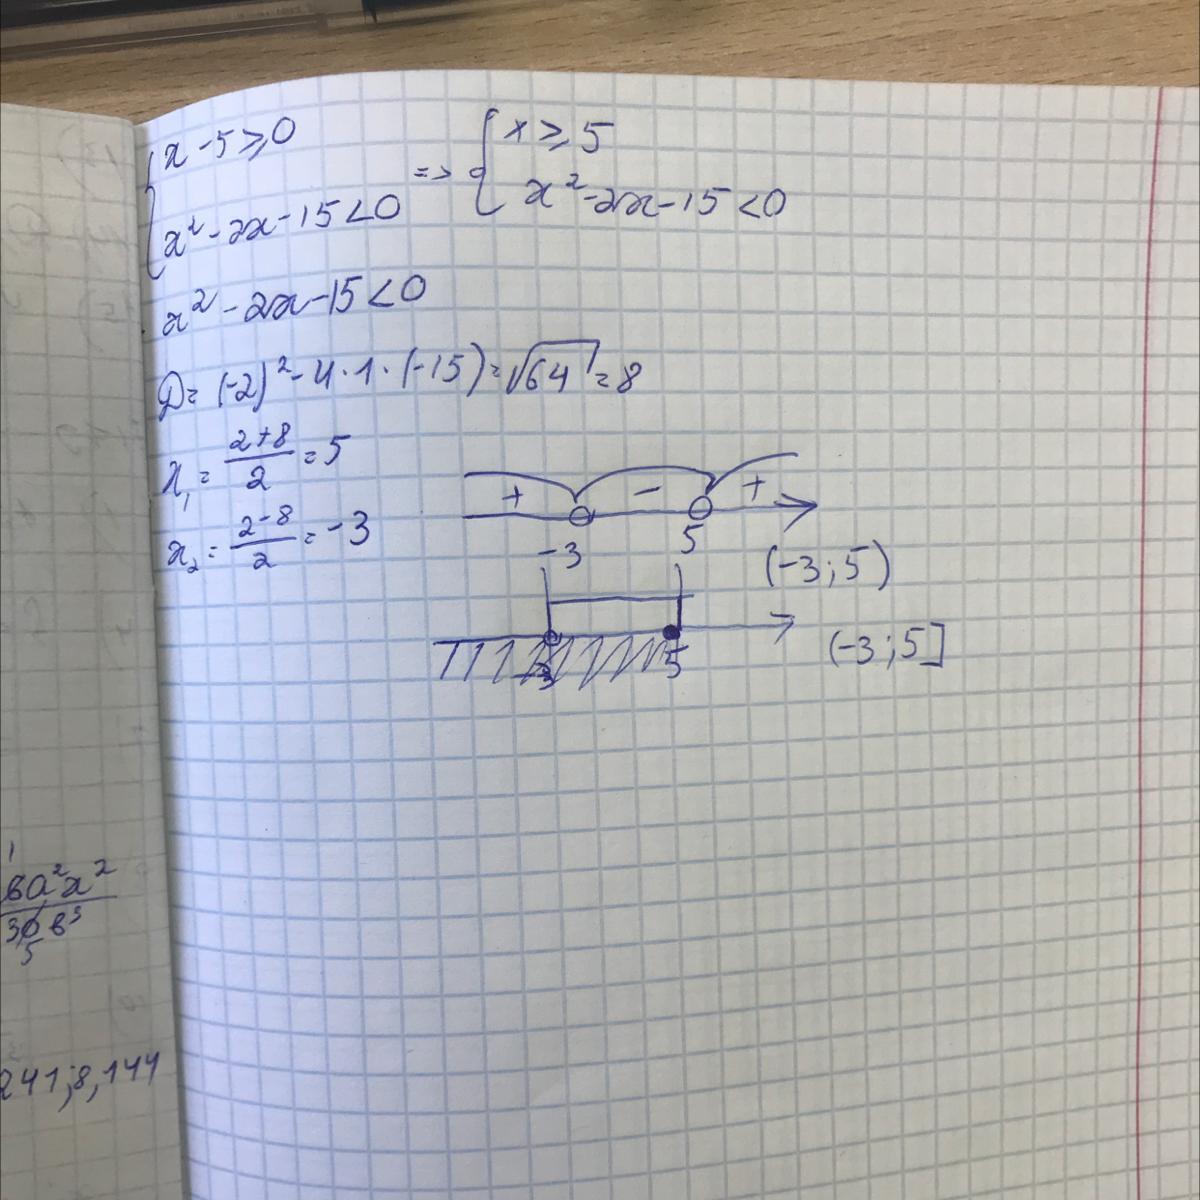 x - 5 ≥ 0
x² - 2x - 15 < 0
=>
x ≥ 5
x² - 2x - 15 < 0
x² - 2x - 15 < 0
D = (-2)² - 4 · 1 · (-15) = √64 = 8
x₁ = (2+8)/2 = 5
x₂ = (2-8)/2 = -3
+ - +
-3 5
(-3; 5)
-3 5
(-3; 5]
1
6a²x²
30 b³
5
241; 8, 144